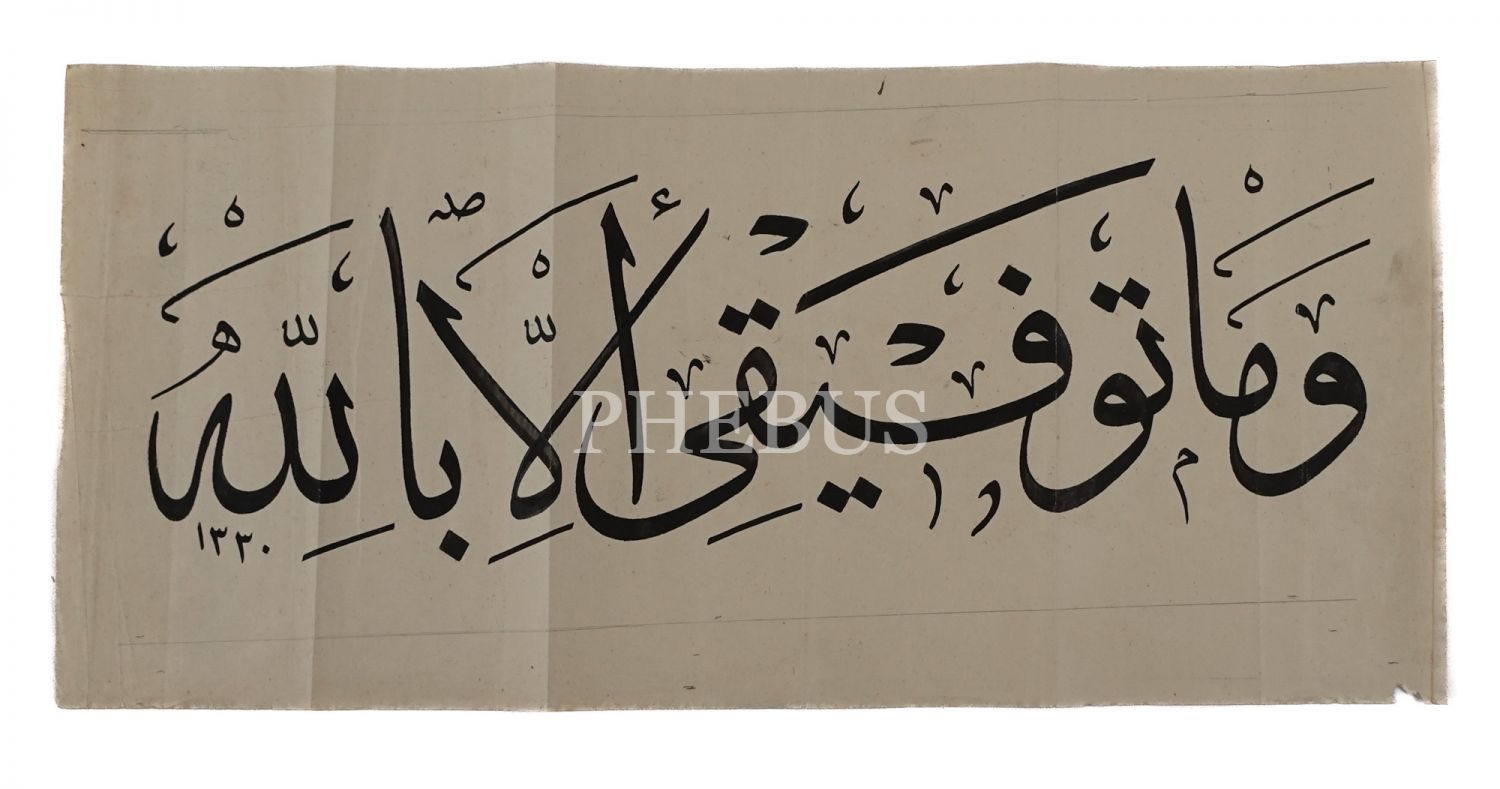 وَمَا تَوْفِيقِي أِلَّا بِاللهِ
١٣٣٠
PHEBUS